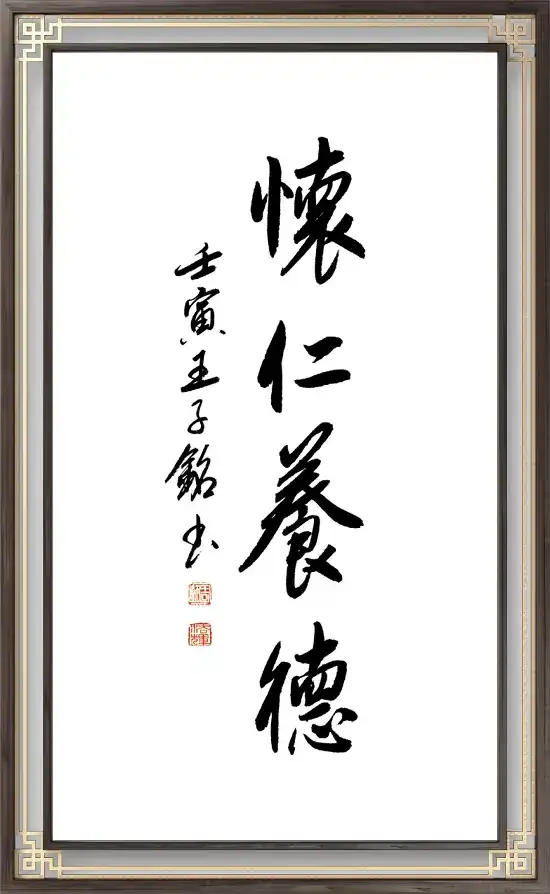 懷仁養德
壬寅王子銘书